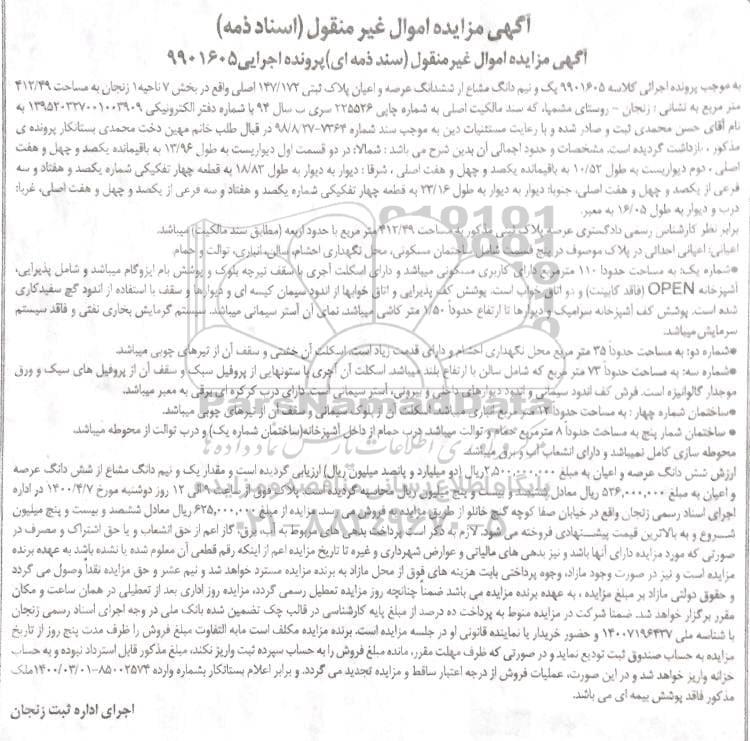 آگهی مزایده اموال غیر منقول (اسناد ذمه)
آگهی مزایده اموال غیرمنقول (سند ذمه ای) پرونده اجرایی ۹۹۰۱۶۰۵
به موجب پرونده اجرائی کلاسه ۹۹۰۱۶۰۵ یک و نیم دانگ مشاع از ششدانگ عرصه و اعیان پلاک ثبتی ۱۴۷/۱۷۲ اصلی واقع در بخش ۷ ناحیه ۱ زنجان به مساحت ۴۱۲/۴۹
متر مربع به نشانی : زنجان - روستای مشمپا، که سند مالکیت اصلی به شماره چاپی ۲۲۵۵۲۶ سری ب سال ۹۴ با شماره دفتر الکترونیکی ۱۳۹۵۲۰۳۲۷۰۰۱۰۰۳۹۰۹ به
نام آقای حسن محمدی ثبت و صادر شده و با رعایت مستثنیات دین به موجب سند شماره ۷۳۶۴-۹۸/۸/۲۷ در قبال طلب خانم مهین دخت محمدی بستانکار پرونده ی
مذکور ، بازداشت گردیده است. مشخصات و حدود اجمالی آن بدین شرح می باشد : شمالا: در دو قسمت اول دیواریست به طول ۱۳/۹۶ به باقیمانده یکصد و چهل و هفت
اصلی ، دوم دیواریست به طول ۱۰/۵۲ به باقیمانده یکصد و چهل و هفت اصلی ، شرقا : دیوار به دیوار به طول ۱۸/۸۲ به قطعه چهار تفکیکی شماره یکصد و هفتاد و سه
فرعی از یکصد و چهل و هفت اصلی، جنوبا: دیوار به دیوار به طول ۲۳/۱۶ به قطعه چهار تفکیکی شماره یکصد و هفتاد و سه فرعی از یکصد و چهل و هفت اصلی، غربا:
درب و دیوار به طول ۱۶/۰۵ به معبر.
برابر نظر کارشناس رسمی دادگستری عرصه پلاک ثبتی مذکور به مساحت ۴۱۲/۴۹ متر مربع با حدود اربعه (مطابق سند مالکیت) میباشد.
اعیانی: اعیانی احداثی در پلاک موصوف در پنج قسمت شامل ساختمان مسکونی، محل نگهداری احشام، سالن، انباری، توالت و حمام.
●شماره یک: به مساحت حدودا ۱۱۰ مترمربع دارای کاربری مسکونی میباشد و دارای اسکلت آجری با سقف تیرچه بلوک و پوشش بام ایزوگام میباشد و شامل پذیرایی،
آشپزخانه OPEN (فاقد کابینت) و دو اتاق خواب است. پوشش کف پذیرایی و اتاق خوابها از اندود سیمان کیسه ای و دیوارها و سقف با استفاده از اندود گچ سفیدکاری
شده است. پوشش کف آشپزخانه سرامیک و دیوارها تا ارتفاع حدوداً ۱/۵۰ متر کاشی میباشد. نمای آن آستر سیمانی میباشد. سیستم گرمایش بخاری نفتی و فاقد سیستم
سرمایش میباشد.
●شماره دو: به مساحت حدوداً ۳۵ متر مربع محل نگهداری احشام و دارای قدمت زیاد است. اسکلت آن خشتی و سقف آن از تیرهای چوبی میباشد.
●شماره سه: به مساحت حدوداً ۷۳ متر مربع که شامل سالن با ارتفاع بلند میباشد. اسکلت آن آجری با ستونهایی از پروفیل سبک و سقف آن از پروفیل های سبک و ورق
موجدار گالوانیزه است. فرش کف اندود سیمانی و اندود دیوارهای داخلی و بیرونی، آستر سیمانی است. دارای درب کرکره ای برقی به معبر میباشد.
●ساختمان شماره چهار : به مساحت حدوداً ۱۲ متر مربع انباری میباشد اسکلت آن از بلوک سیمانی و سقف آن از تیرهای چوبی میباشد.
● ساختمان شمار پنج به مساحت حدوداً ۸ مترمربع حمام و توالت میباشد. درب حمام از داخل آشپزخانه (ساختمان شماره یک) و درب توالت از محوطه میباشد.
محوطه سازی کامل نمیباشد و دارای انشعاب آب و برق میباشد.
ارزش شش دانگ عرصه و اعیان به مبلغ ۲,۵۰۰,۰۰۰,۰۰۰ ریال (دو میلیارد و پانصد میلیون ریال) ارزیابی گردیده است و مقدار یک و نیم دانگ مشاع از شش دانگ عرصه
و اعیان به مبلغ ریال معادل ششصد و بیست و پنج میلیون ریال محاسبه گردیده است. پلاک فوق از ساعت ۹ الی ۱۲ روز دوشنبه مورخ ۱۴۰۰/۴/۷ در اداره
اجرای اسناد رسمی زنجان واقع در خیابان صفا کوچه گنج خانلو از طریق مزایده به فروش می رسد. مزایده از مبلغ ۶۲۵,۰۰۰,۰۰۰ ریال معادل ششصد و بیست و پنج میلیون
شـــروع و به بالاترین قیمت پیشنهادی فروخته می شود. لازم به ذکر است پرداخت بدهی های مربوط به آب، برق، گاز اعم از حق انشعاب و یا حق اشتراک و مصرف در
صورتی که مورد مزایده دارای آنها باشد و نیز بدهی های مالیاتی و عوارض شهرداری و غیره تا تاریخ مزایده اعم از اینکه رقم قطعی آن معلوم شده یا نشده باشد به عهده برنده
مزایده است و نیز در صورت وجود مازاد، وجوه پرداختی بابت هزینه های فوق از محل مازاد به برنده مزایده مسترد خواهد شد و نیم عشر و حق مزایده نقداً وصول می گردد
و حقوق دولتی مازاد بر مبلغ مزایده ، به عهده برنده مزایده می باشد ضمناً چنانچه روز مزایده تعطیل رسمی گردد، مزایده روز اداری بعد از تعطیلی در همان ساعت و مکان
مقرر برگزار خواهد شد. ضمناً شرکت در مزایده منوط به پرداخت ده درصد از مبلغ پایه کارشناسی در قالب چک تضمین شده بانک ملی در وجه اجرای اسناد رسمی زنجان
با شناسه ملی ۱۴۰۰۷۱۹۶۴۳۷ و حضور خریدار یا نماینده قانونی او در جلسه مزایده است. برنده مزایده مکلف است مابه التفاوت مبلغ فروش را ظرف مدت پنج روز از تاریخ
مزایده به حساب صندوق ثبت تودیع نماید و در صورتی که ظرف مهلت مقرر، مانده مبلغ فروش را به حساب سپرده ثبت واریز نکند، مبلغ مذکور قابل استرداد نبوده و به حساب
خزانه واریز خواهد شد و در این صورت، عملیات فروش از درجه اعتبار ساقط و مزایده تجدید می گردد. و برابر اعلام بستانکار بشماره وارده ۸۵۰۰۲۵۷۴-۱۴۰۰/۰۳/۰۱ ملک
مذکور فاقد پوشش بیمه ای می باشد.
اجرای اداره ثبت زنجان
پایگاه اطلاع رسانی مناقصه و مزایده
۰۲۱-۸۸۳۴۹۶۷۰-۵